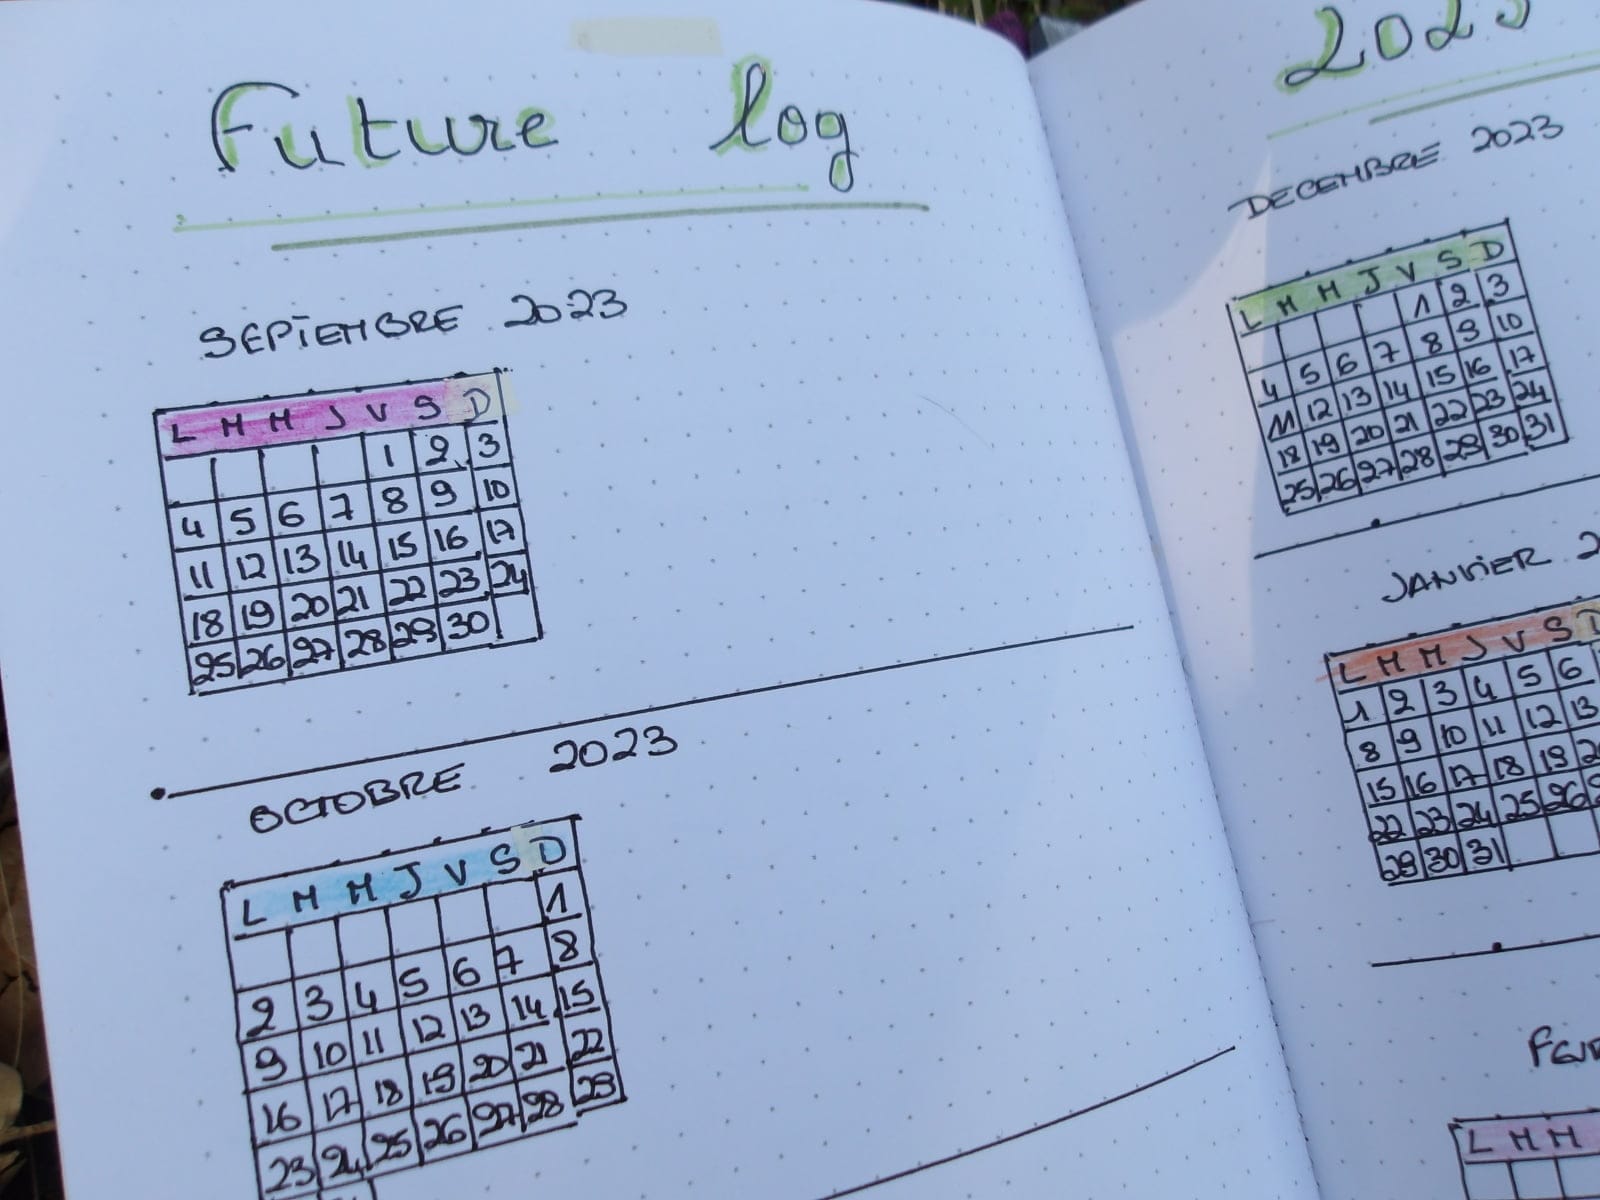 Future log
SEPTEMBRE 2023
L M M J V S D
1 2 3
4 5 6 7 8 9 10
11 12 13 14 15 16 17
18 19 20 21 22 23 24
25 26 27 28 29 30
OCTOBRE 2023
L M M J V S D
1
2 3 4 5 6 7 8
9 10 11 12 13 14 15
16 17 18 19 20 21 22
23 24 25 26 27 28 29
2023
DECEMBRE 2023
L M M J V S D
1 2 3
4 5 6 7 8 9 10
11 12 13 14 15 16 17
18 19 20 21 22 23 24
25 26 27 28 29 30 31
JANVIER 2
L M M J V S D
1 2 3 4 5 6
8 9 10 11 12 13
15 16 17 18 19 20
22 23 24 25 26
29 30 31
L M M